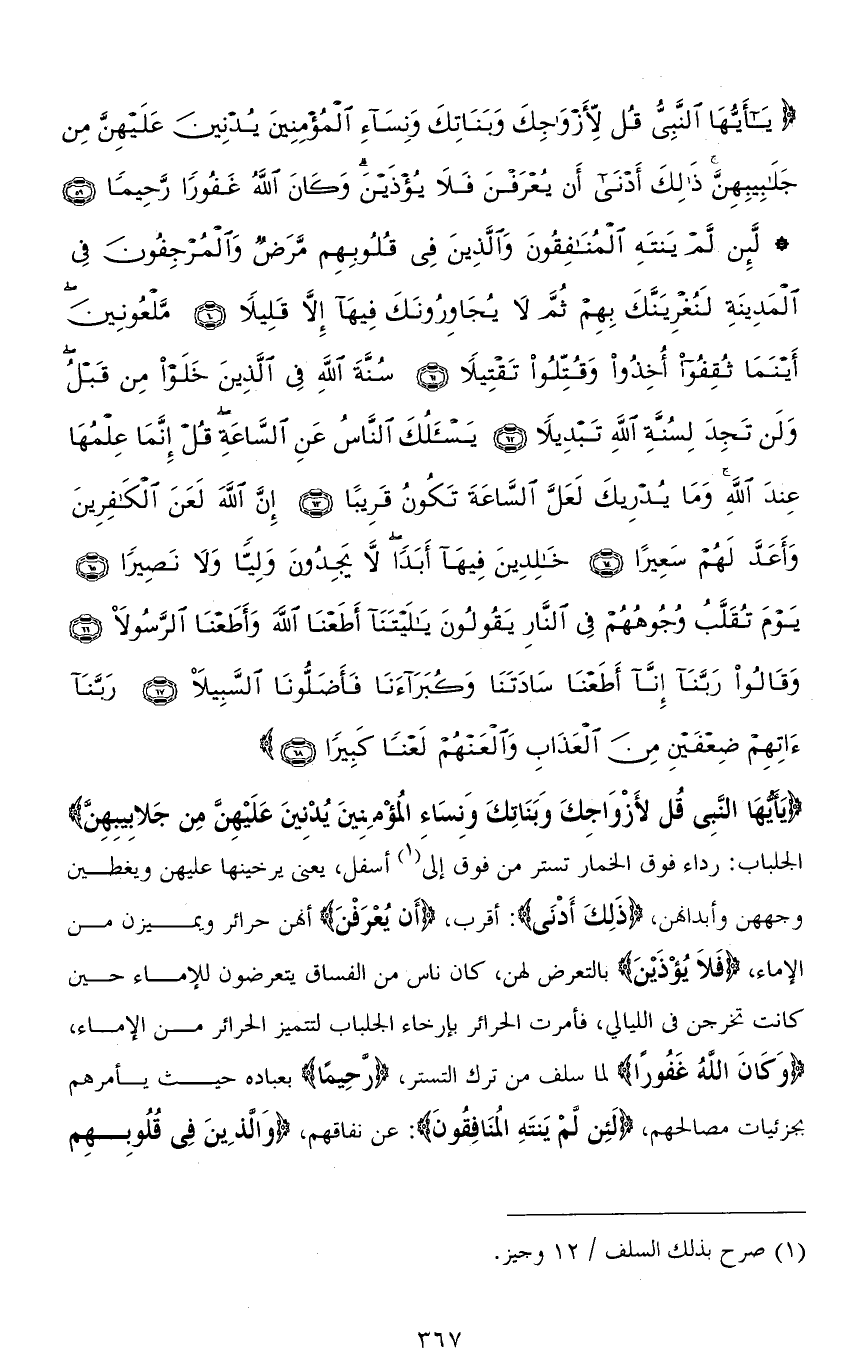 ﴿ يَـٰٓأَيُّهَا ٱلنَّبِىُّ قُل لِّأَزْوَٰجِكَ وَبَنَاتِكَ وَنِسَآءِ ٱلْمُؤْمِنِينَ يُدْنِينَ عَلَيْهِنَّ مِن
جَلَـٰبِيبِهِنَّ ۚ ذَٰلِكَ أَدْنَىٰٓ أَن يُعْرَفْنَ فَلَا يُؤْذَيْنَ ۗ وَكَانَ ٱللَّهُ غَفُورًا رَّحِيمًا ۝٥٩
* لَّئِن لَّمْ يَنتَهِ ٱلْمُنَـٰفِقُونَ وَٱلَّذِينَ فِى قُلُوبِهِم مَّرَضٌ وَٱلْمُرْجِفُونَ فِى
ٱلْمَدِينَةِ لَنُغْرِيَنَّكَ بِهِمْ ثُمَّ لَا يُجَاوِرُونَكَ فِيهَآ إِلَّا قَلِيلًا ۝٦٠ مَّلْعُونِينَ ۖ
أَيْنَمَا ثُقِفُوٓا۟ أُخِذُوا۟ وَقُتِّلُوا۟ تَقْتِيلًا ۝٦١ سُنَّةَ ٱللَّهِ فِى ٱلَّذِينَ خَلَوْا۟ مِن قَبْلُ ۖ
وَلَن تَجِدَ لِسُنَّةِ ٱللَّهِ تَبْدِيلًا ۝٦٢ يَسْـَٔلُكَ ٱلنَّاسُ عَنِ ٱلسَّاعَةِ ۖ قُلْ إِنَّمَا عِلْمُهَا
عِندَ ٱللَّهِ ۚ وَمَا يُدْرِيكَ لَعَلَّ ٱلسَّاعَةَ تَكُونُ قَرِيبًا ۝٦٣ إِنَّ ٱللَّهَ لَعَنَ ٱلْكَـٰفِرِينَ
وَأَعَدَّ لَهُمْ سَعِيرًا ۝٦٤ خَـٰلِدِينَ فِيهَآ أَبَدًا ۖ لَّا يَجِدُونَ وَلِيًّا وَلَا نَصِيرًا ۝٦٥
يَوْمَ تُقَلَّبُ وُجُوهُهُمْ فِى ٱلنَّارِ يَقُولُونَ يَـٰلَيْتَنَآ أَطَعْنَا ٱللَّهَ وَأَطَعْنَا ٱلرَّسُولَا۠ ۝٦٦
وَقَالُوا۟ رَبَّنَآ إِنَّآ أَطَعْنَا سَادَتَنَا وَكُبَرَآءَنَا فَأَضَلُّونَا ٱلسَّبِيلَا۠ ۝٦٧ رَبَّنَآ
ءَاتِهِمْ ضِعْفَيْنِ مِنَ ٱلْعَذَابِ وَٱلْعَنْهُمْ لَعْنًا كَبِيرًا ۝٦٨ ﴾
﴿يَأَيُّهَا النَّبِى قُل لأَزْوَاجِكَ وَبَنَاتِكَ وَنِسَاءِ الْمُؤْمِنِينَ يُدْنِينَ عَلَيْهِنَّ مِن جَلابِيبِهِنَّ﴾
الجلباب: رداء فوق الخمار تستر من فوق إلى(١) أسفل، يعنى يرخينها عليهن ويغطين
وجههن وأبدانهن، ﴿ذَلِكَ أَدْنَى﴾: أقرب، ﴿أَن يُعْرَفْنَ﴾ أنهن حرائر ويميزن من
الإماء، ﴿فَلاَ يُؤْذَيْنَ﴾ بالتعرض لهن، كان ناس من الفساق يتعرضون للإماء حين
كانت تخرجن فى الليالي، فأمرت الحرائر بإرخاء الجلباب لتتميز الحرائر من الإماء،
﴿وَكَانَ اللَّهُ غَفُورًا﴾ لما سلف من ترك التستر، ﴿رَّحِيمًا﴾ بعباده حيث يأمرهم
بجزئيات مصالحهم، ﴿لَئِن لَّمْ يَنتَهِ الْمُنَافِقُونَ﴾: عن نفاقهم، ﴿وَالَّذِينَ فِى قُلُوبِهِم
(١) صرح بذلك السلف / ١٢ وجيز.
٣٦٧